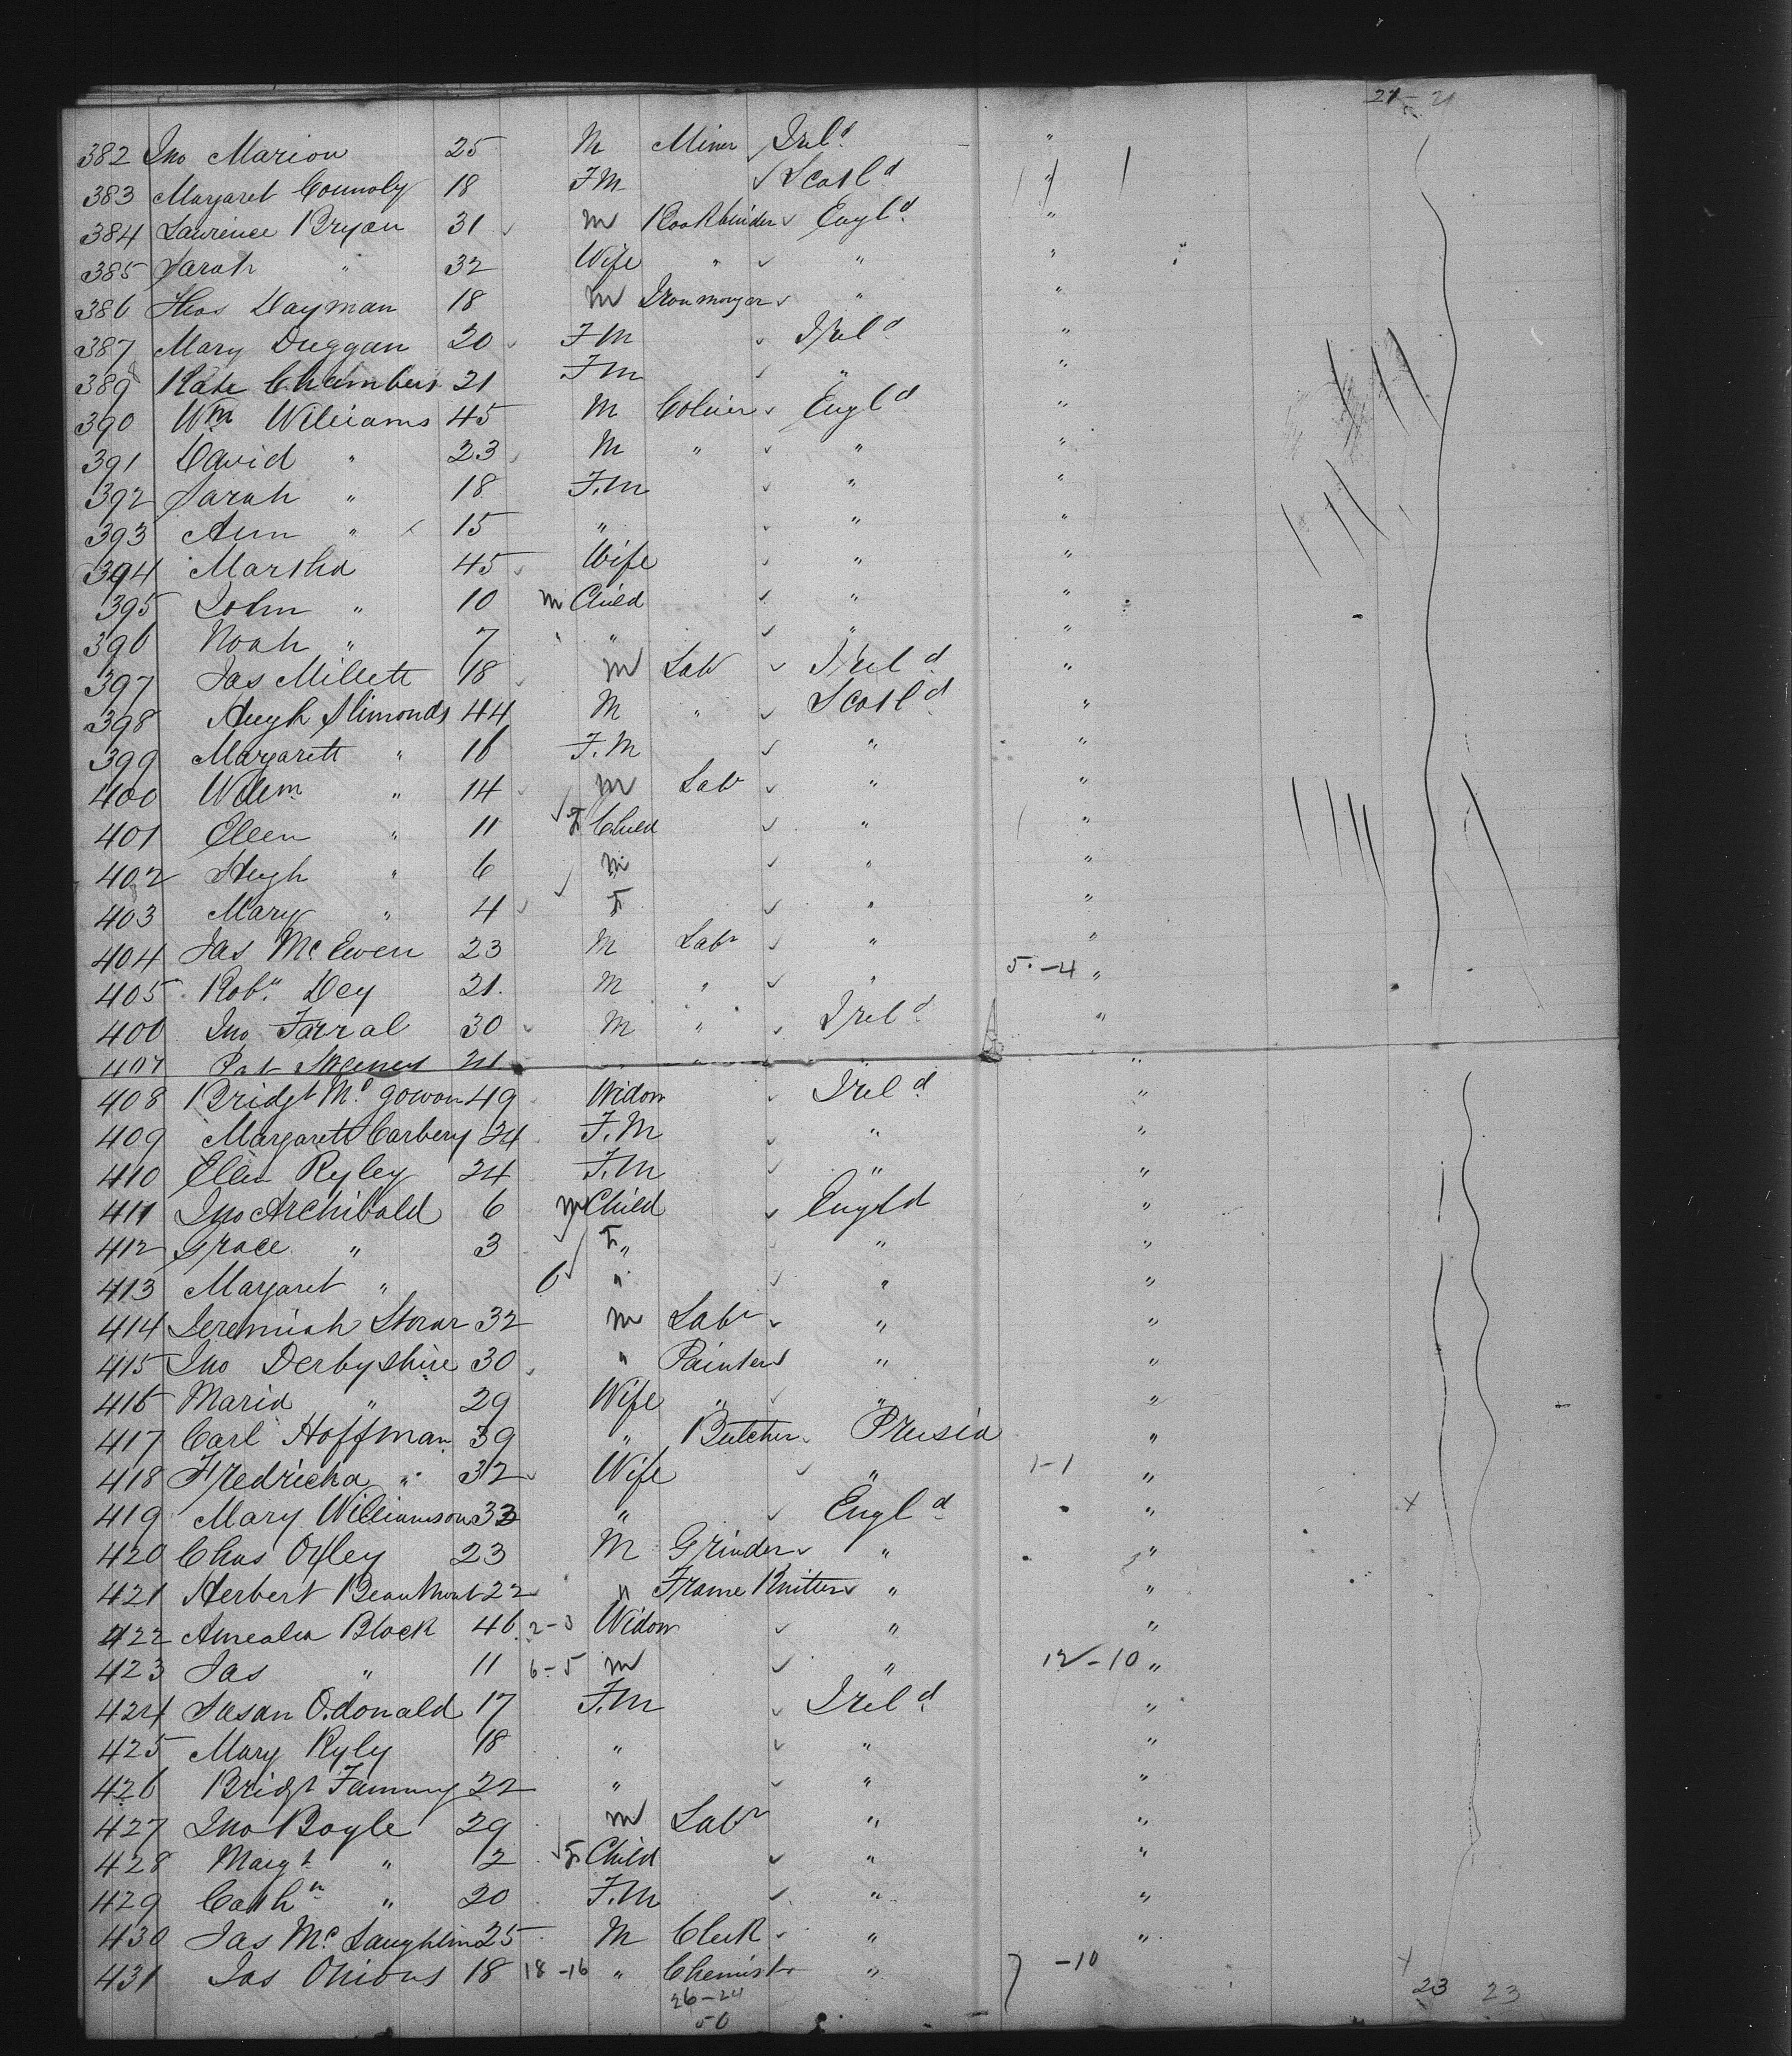 21 - 21
382 Jno Marion 25 M Miner Irel d "
383 Margaret Connoly 18 FM Scotl d "
384 Lawrence Bryan 31 M Bookbinder Engl d "
385 Sarah " 32 Wife " " "
386 Thos Dayman 18 M Ironmonger " "
387 Mary Duggan 20 FM Irel d "
389 Kate Chambers 21 FM " "
390 Wm Williams 45 M Colier Engl d "
391 David " 23 M " " "
392 Sarah " 18 F.M " "
393 Ann " x 15 " " "
394 Martha 45 Wife " "
395 John " 10 m Child " "
396 Noah " 7 " " "
397 Jas Millett 18 M Lab Irel d "
398 Hugh Slimonds 44 M " Scotl d "
399 Margarett " 16 F.M " "
400 Willm " 14 M Lab " "
401 Ellen " 11 F Child " "
402 Hugh " 6 m " "
403 Mary " 4 F " "
404 Jas Mc Ewen 23 M Labr " "
405 Robt Dey 21 M " " 5-4 "
406 Jno Farral 30 M " Irel d "
407 Pat 21 " "
408 Bridgt Mc gowan 49 Widow Irel d "
409 Margarett Carbery 24 F.M " "
410 Ellen Ryley 24 F.M " "
411 Jno Archibald 6 m Child Engld "
412 Grace " 3 F " " "
413 Margaret " 6 " " "
414 Jeremiah Storar 32 M Labr " "
415 Jno Derbyshire 30 " Painter " "
416 Maria " 29 Wife " " "
417 Carl Hoffman 39 " Butcher Prusia "
418 Fredricka " 32 Wife " 1-1 "
419 Mary Williamson 33 " Engl d " x
420 Chas Oxley 23 M Grinder " "
421 Herbert Beaumont 22 " Frame Knitter " "
422 Amealia Block 46 2-3 Widow " "
423 Jas " 11 6-5 M " 12-10 "
424 Susan O.donald 17 F.M Irel d "
425 Mary Ryly 18 " " "
426 Bridgt Fanning 22 " " "
427 Jno Boyle 29 M Labr " "
428 Margt " 2 F Child " "
429 Cathn " 20 F.M " "
430 Jas Mc Laughlin 25 M Clerk " "
431 Jas Onions 18 18-16 " Chemist " 7 -10 x
26-24 23 23
50